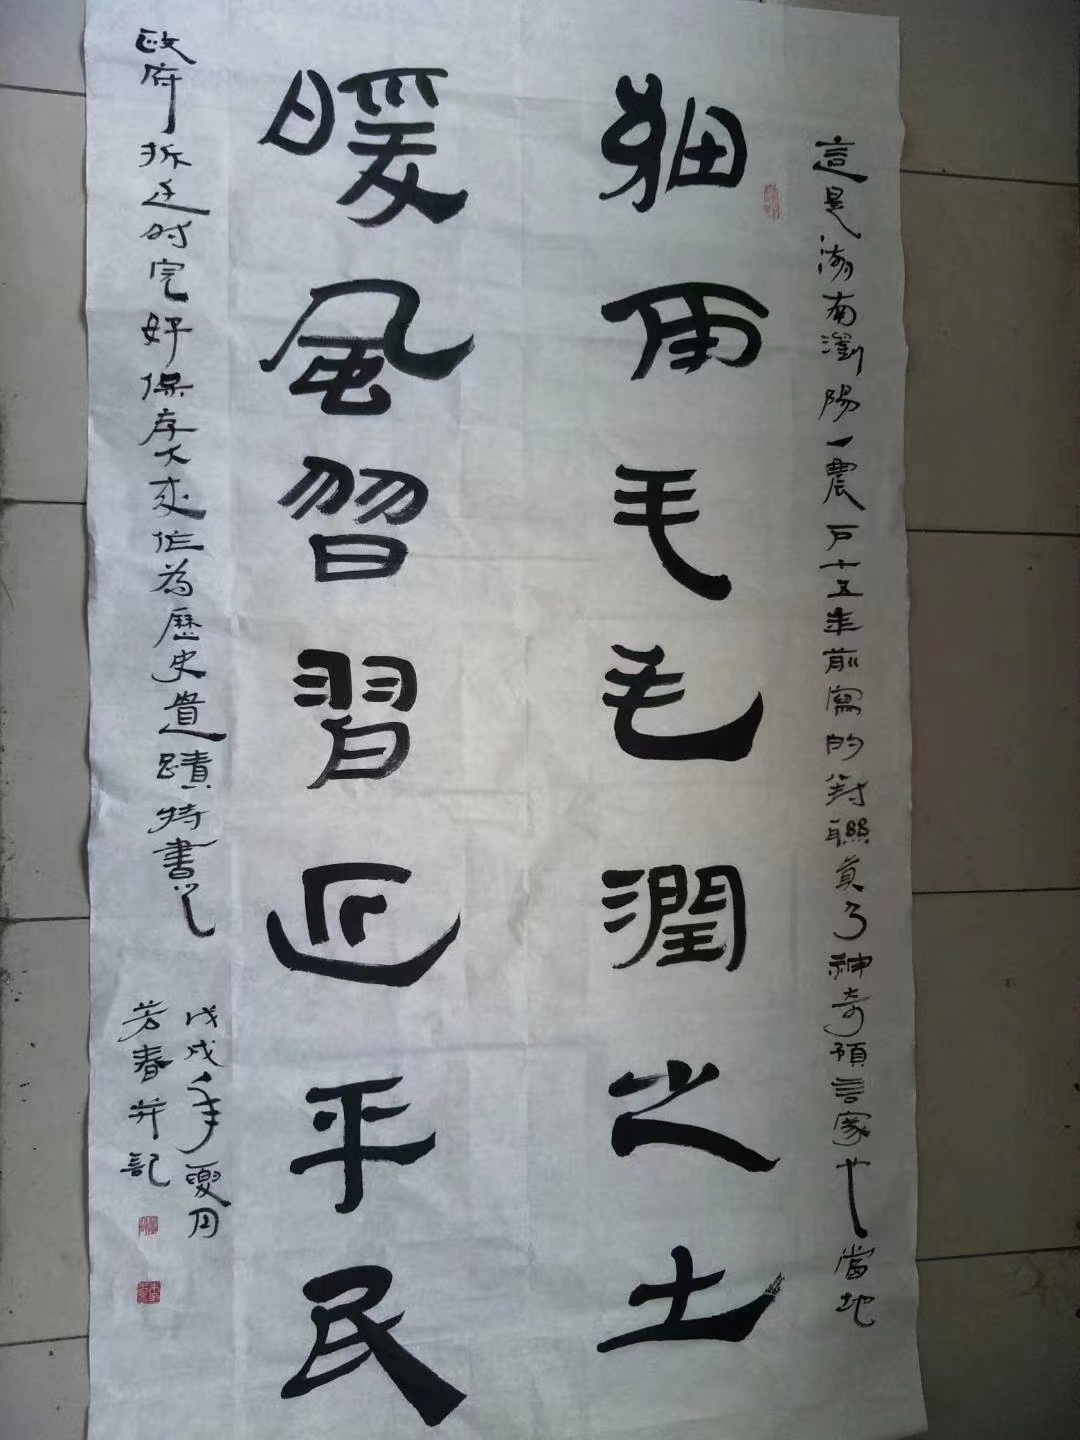 這是湖南瀏陽一農戶十五年前寫的對聯真乃神奇預言家也當地
細雨毛毛潤之土
暖風習習近平民
政府拆迁时完好保存下來作為歷史遺蹟特書之
戊戌年夏月
芳春并記